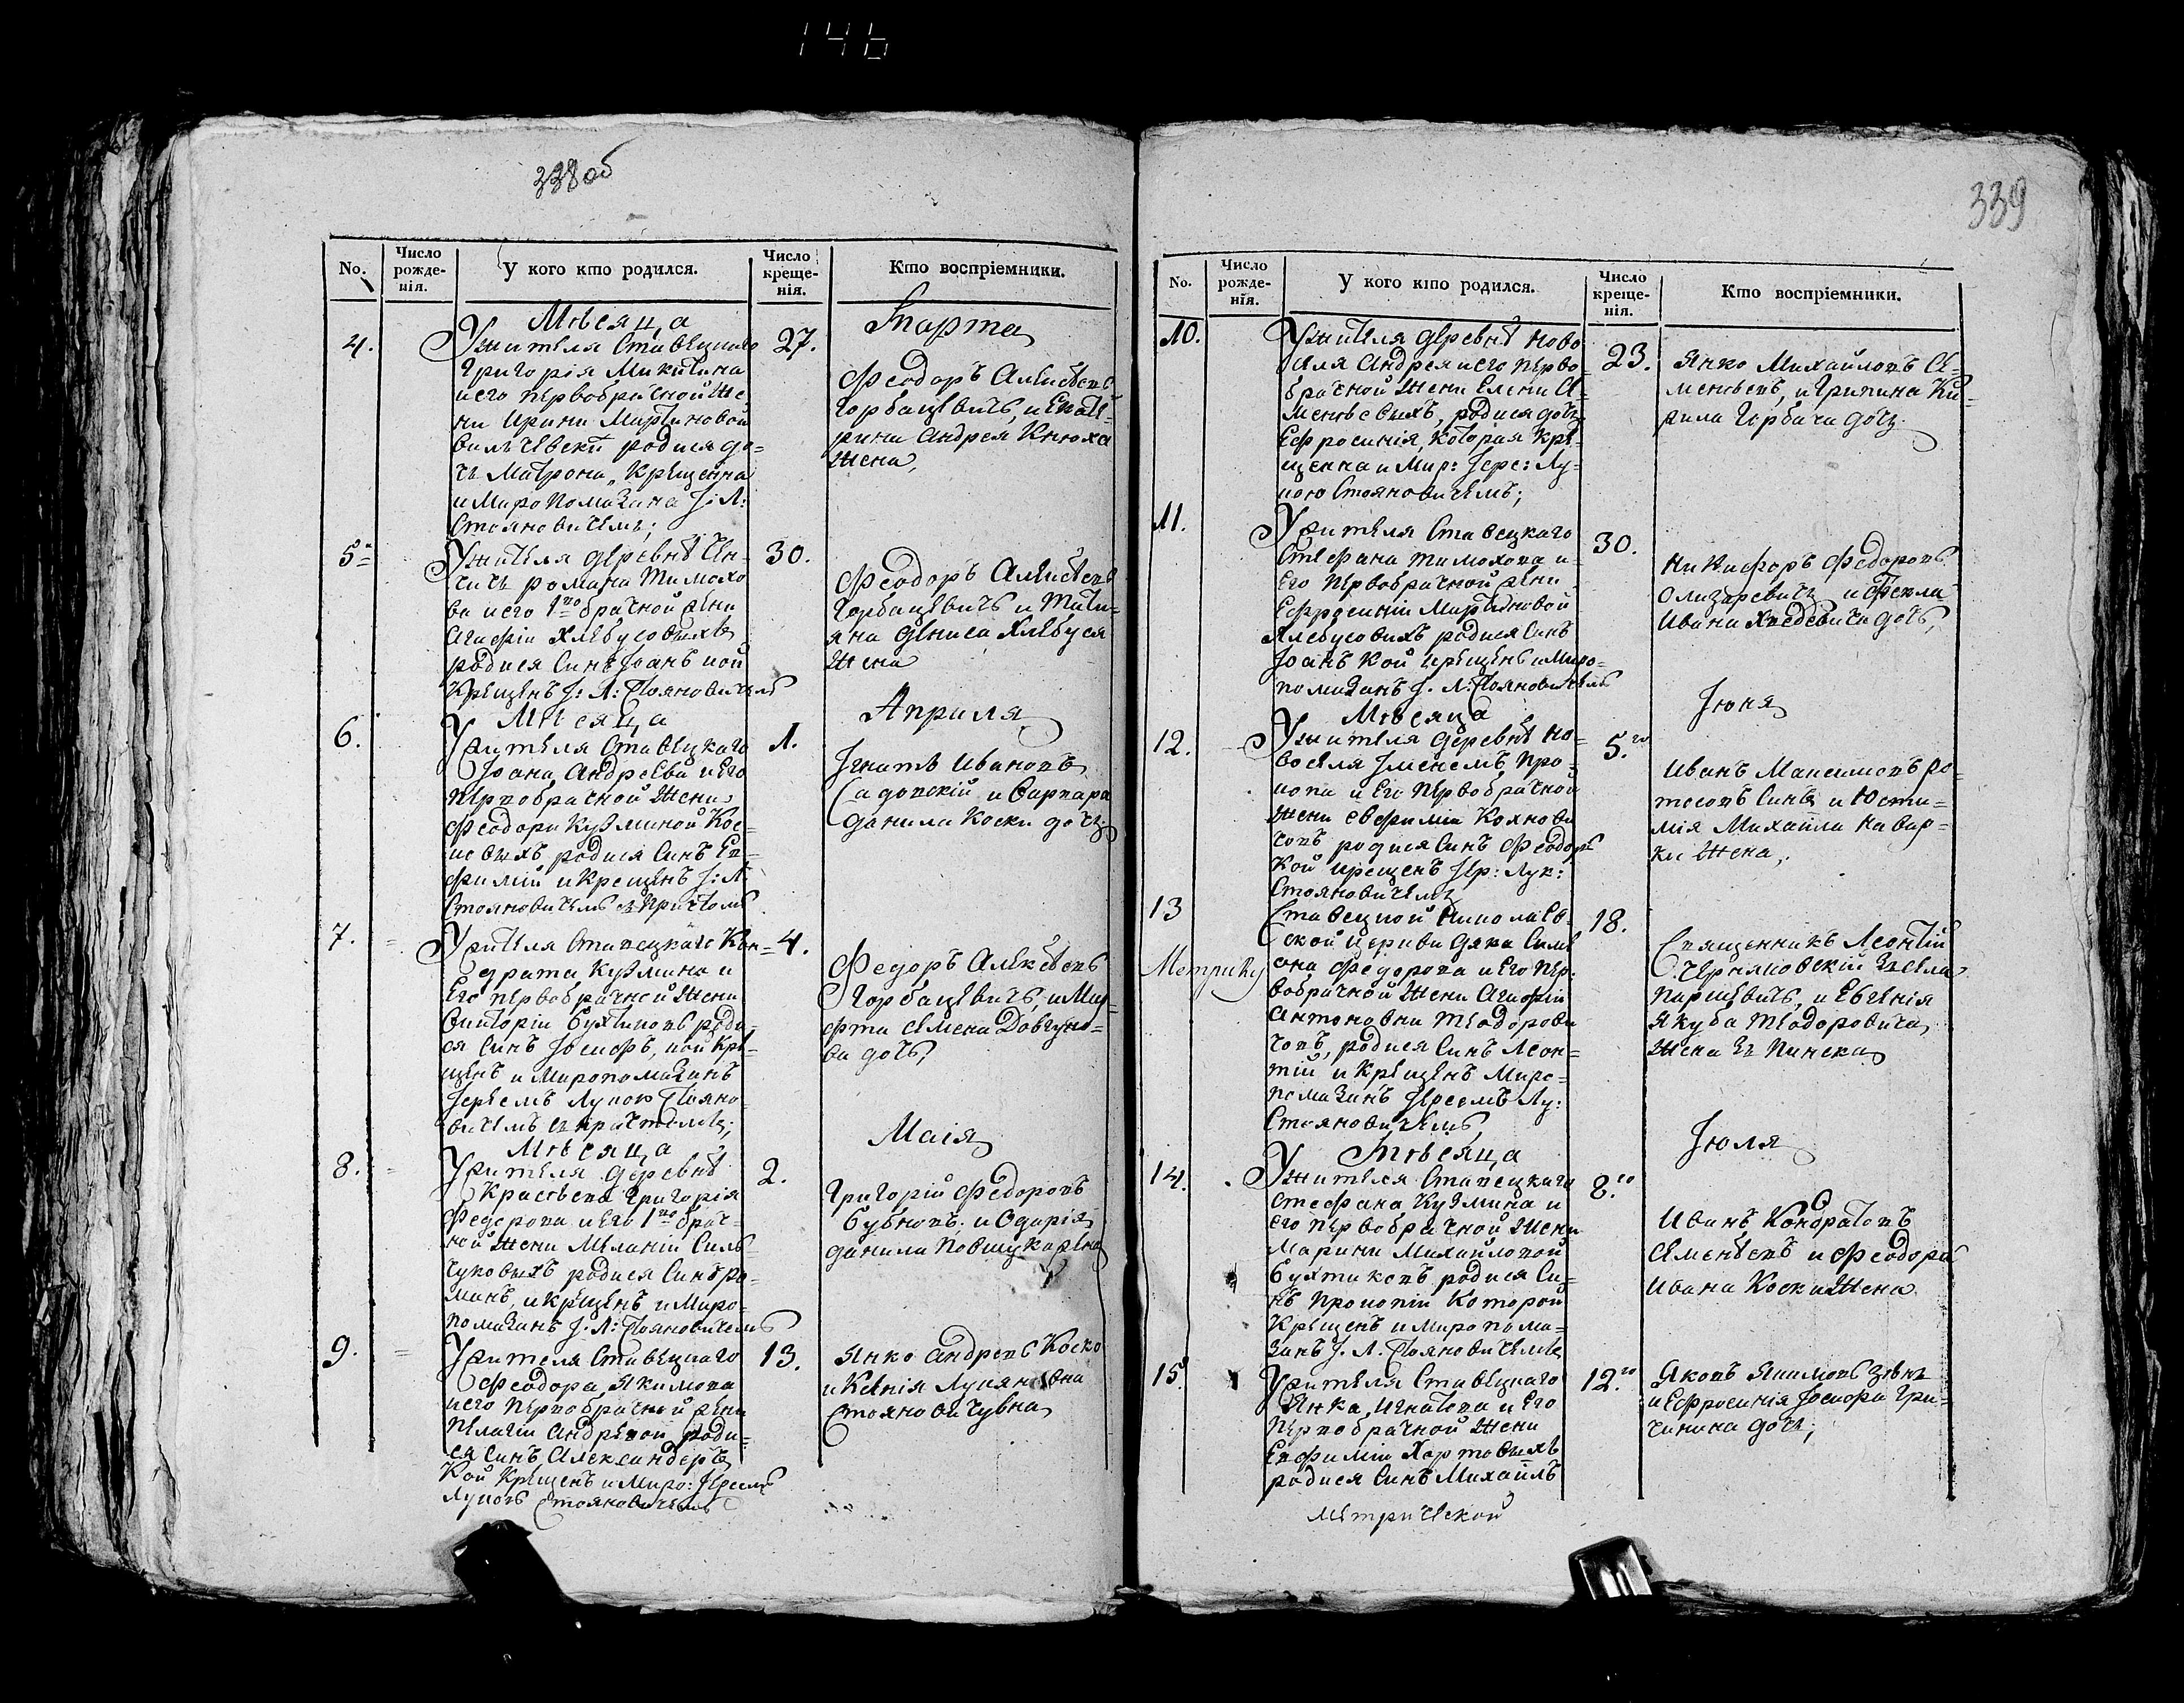 146
338об
No.
Число рожде-нія.
У кого кто родился.
Число креще-нія.
Кто воспріемники.
Мѣсяца
Марта
4.
27.
Ужителя Ставецкаго
Григорія Микитина
и его первобрачной Же
ни Ирини Мартиновой
родися до-
чь Матрона, Крещенна
и Миропомазана І: Л:
Стояновичемъ;
Феодоръ Алексѣевъ
Горбацевичъ, и Екате
рина Андрея Кнюха
Жена,
5
30.
Ужителя деревнѣ Чен-
чичь романа Тимохо
ва и его 1но брачной жени
Агафіи Хлебусовыхъ
родися Синъ Іоанъ кой
Крещенъ І: Л: Стояновичемъ
Феодоръ Алексѣевъ
Горбацевичъ и Тати-
яна Дениса Хлебуся
Жена
Мѣсяца
Априля
6.
1.
Ужителя Ставецкаго
Іоана Андреева и Его
первобрачной Жени
Феодори Кузминой Кос-
ковыхъ родися Синъ Ев-
фимій и Крещенъ І: Л:
Стояновичемъ съ Причтомъ
Ігнатъ Ивановъ
Садовскій и Варвара
Данила Коски дочъ
7.
4.
Ужителя Ставецкаго Кон-
драта Кузмина и
Его первобрачной Жени
Викторіи Бухтиковъ роди-
ся Синъ Іосифъ, кой Кре-
щенъ и Миропомазанъ
Іереемъ Лукою Стояно-
вичемъ съ причтомъ;
Федоръ Алексѣевъ
Горбацевичъ, и Мар-
фа Семена Довгуно-
ва дочъ,
Мѣсяца
Маія
8.
2.
Ужителя деревнѣ
Красѣева Григорія
Федорова и его 1но брач-
ной Жени Меланіи Силь
чуковыхъ родися Синъ ро-
манъ, и Крещенъ и Миро-
помазанъ І: Л: Стояновичемъ
Григорій Федоровъ
Бубновъ, и Одарія
Данила
9.
13.
Ужителя Ставецкаго
Феодора Якимова
и его первобрачной жени
Пелагіи Андреевой роди-
ся Синъ Александеръ
Кой Крещенъ и Миро: Іереемъ
Лукою Стояновичемъ
Янко Андреевъ Коско
и Ксенія Лукяновна
Стояновичувна
339
No.
Число рожде-нія.
У кого кто родился.
Число креще-нія.
Кто воспріемники.
10.
23.
Ужителя деревнѣ Ново
Селя Андрея и его перво
брачной Жени Елени Се-
меновыхъ, родися дочъ
Ефросинія, Которая Кре-
щенна и Мир: Іере: Лу-
кою Стояновичемъ;
Янко Михайловъ Се-
меневъ, и Грипина Ки-
рила Горбача дочъ.
11.
30.
Ужителя Ставецкаго
Стефана Тимохова и
Его первобрачной жени
Ефросиніи Мартиновой
Хлебусовыхъ родися Синъ
Іоанъ кой крещенъ и Миро-
помазанъ І. Л: Стояновичемъ
Никифоръ Федоровъ
Олизаревичъ и Фекла
Ивана дочъ,
Мѣсяца
Іюня
12.
5.го
Ужителя деревнѣ Но-
воселя Іменемъ Про-
копа и Его первобрачной
Жени Евфиміи Коянови
човъ родися Синъ Феодоръ
Кой крещенъ Іер: Лук:
Стояновичемъ
Иванъ Максимовъ Ро-
Синъ и Юсти-
мія Михайли Навар-
ки Жена,
13
18.
Метрику
Ставецкой Николаев-
ской церкви дяка Симе
она Федорова и Его пер-
вобрачной Жени Агафіи
Антоновни Теодорови
човъ, родися Синъ Леон-
тій и Крещенъ Миро-
помазанъ Іереемъ Лу:
Стояновичемъ
Священникъ Леонтій
Черняковскій зъ села
Паршевичъ, и Евгенія
Якуба Теодоровича
Жена зъ Пинска
Мѣсяца
Іюля
14.
8.го
Ужителя Ставецкаго
Стефана Кузмина и
Его первобрачной Жени
Марини Михайловой
Бухтиковъ родися Си-
нъ Прокопій Которой
Крещенъ и Миропома-
занъ І. Л. Стояновичемъ
Иванъ Кондратовъ
Семенѣевъ и Феодора
Ивана Коски Жена
15.
12.го
Ужителя Ставецкаго
Янка Игнатова и Его
Первобрачной Жени
Евфиміи Хартовыхъ
родися Синъ Михаилъ
Яковъ Якимовъ
и Ефросинія Іосифа Гри-
чинина дочъ;
метрической